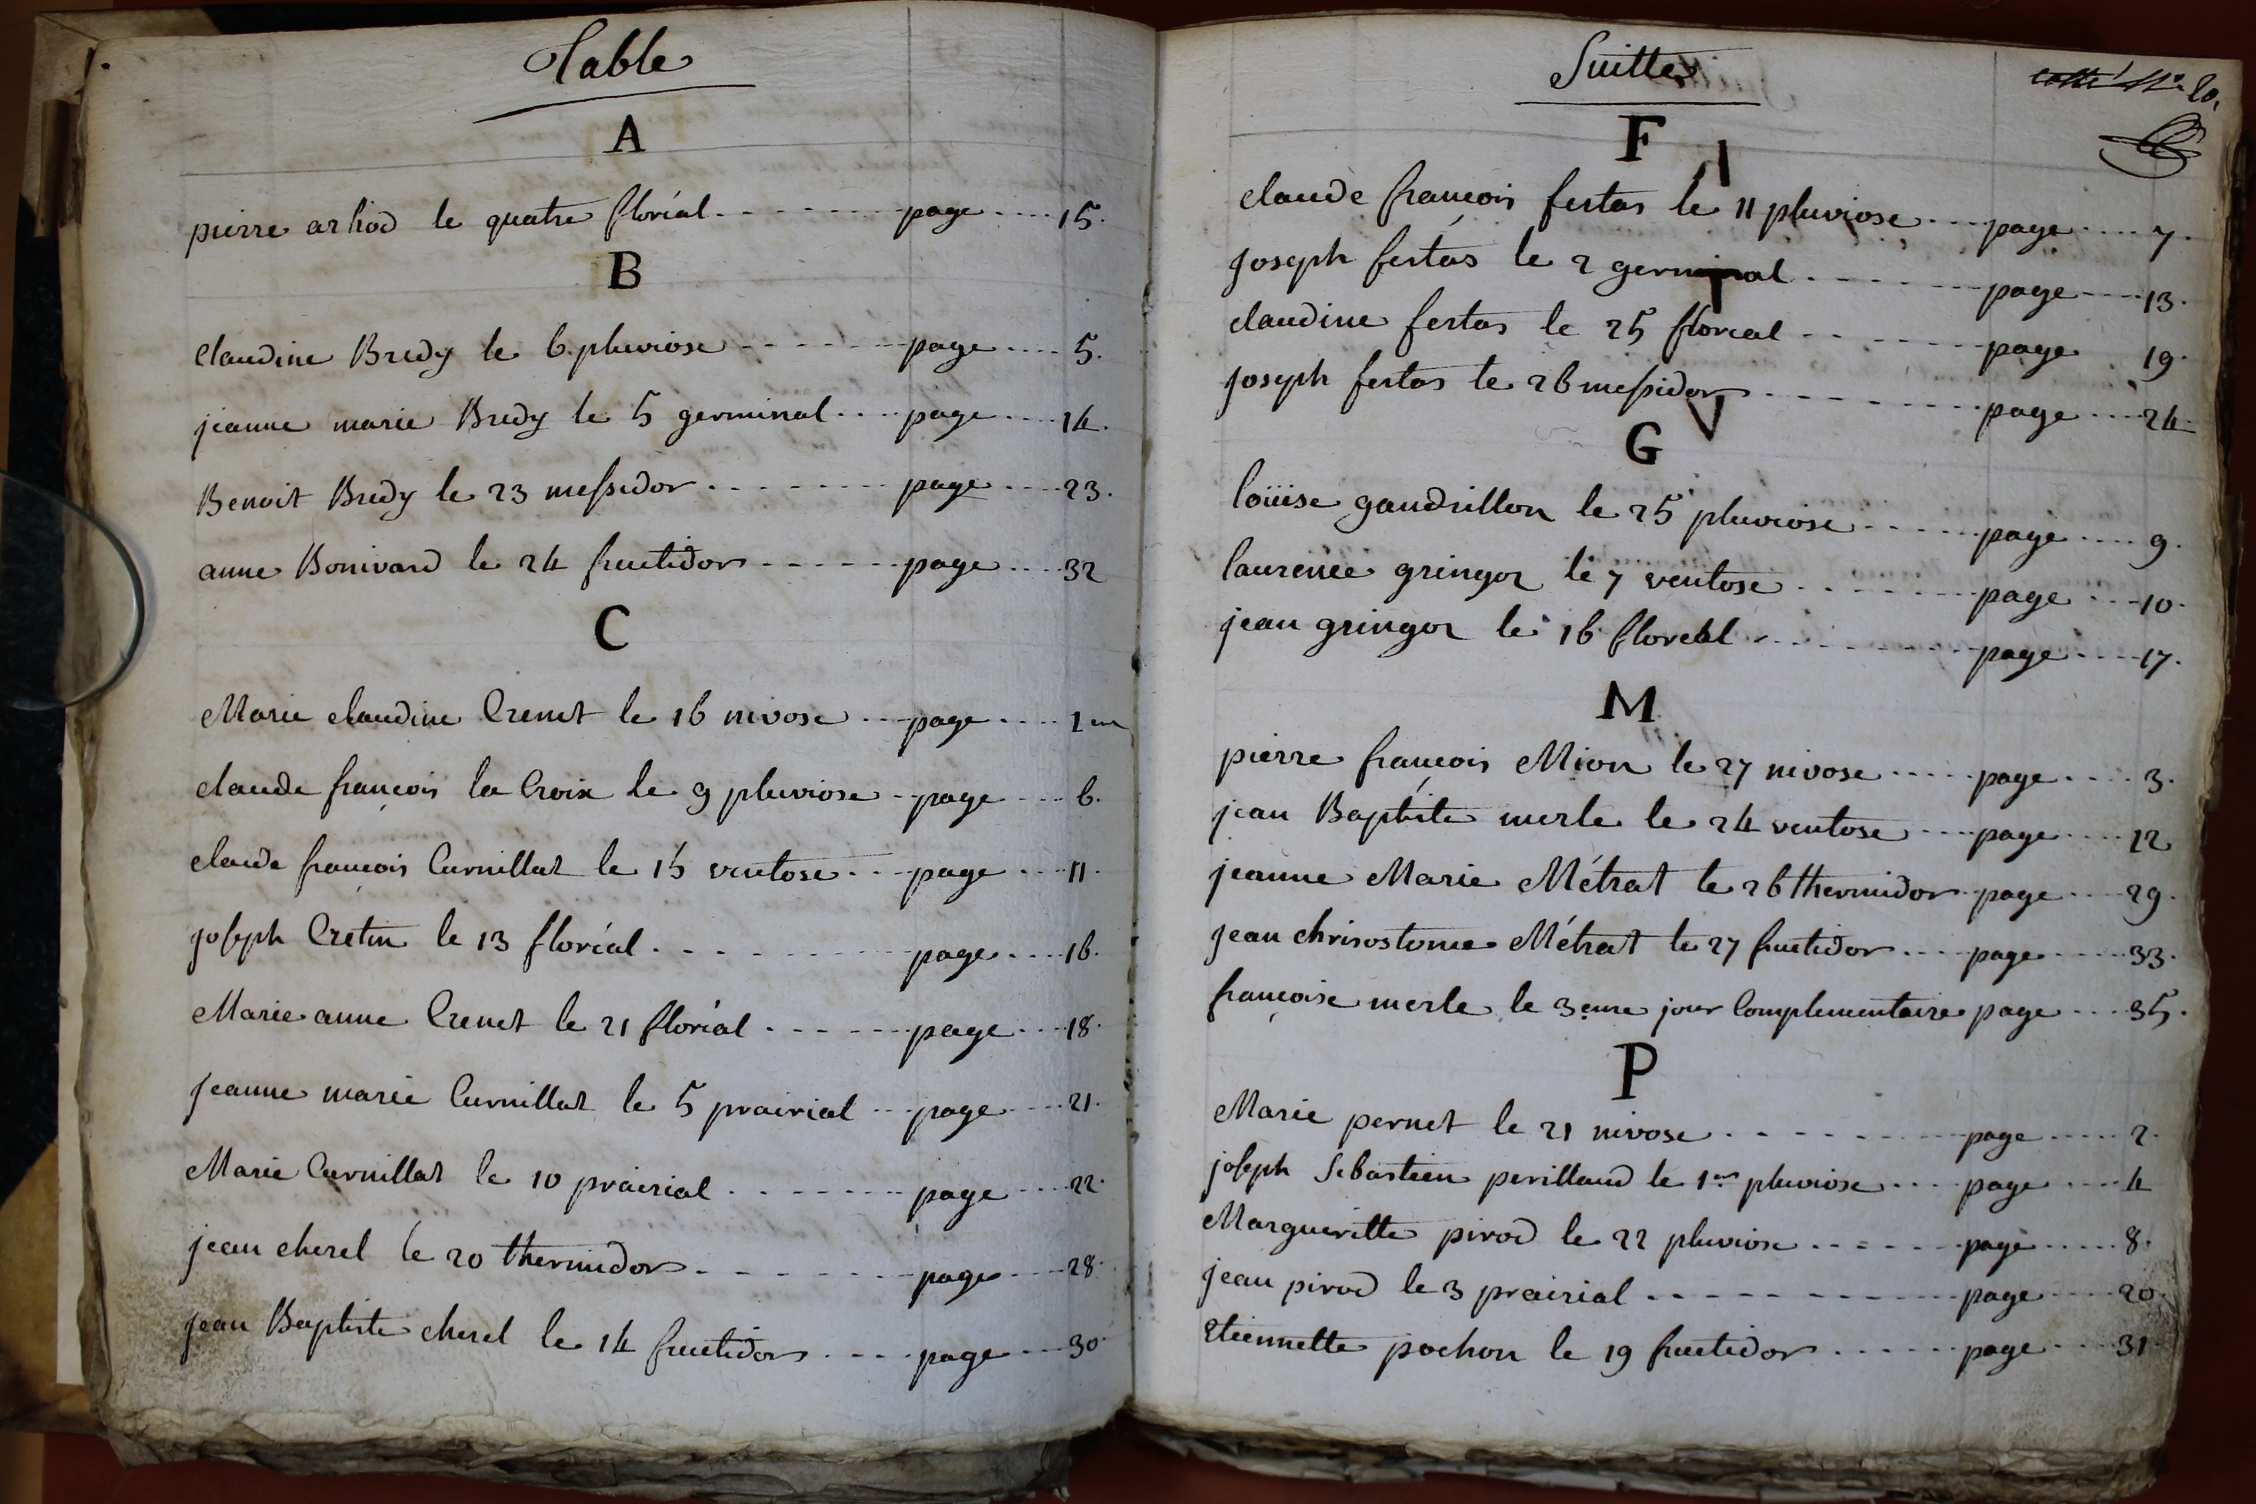 Table
A
pierre arhod le quatre floréal page 15.
B
claudine Bredy le 6 pluviose page 5.
jeanne marie Bredy le 5 germinal page 14.
Benoit Bredy le 23 messidor page 23.
anne Bonivard le 24 fructidor page 32
C
Marie claudine Crenet le 16 nivose page 1
claude françois la Croix le 9 pluviose page 6.
claude françois Curnillat le 15 ventose page 11.
joseph Cretin le 13 floréal page 16.
Marie anne Crenet le 21 floréal page 18.
jeanne marie Curnillat le 5 prairial page 21.
Marie Curnillat le 10 prairial page 22.
jean cherel le 20 thermidor page 28.
jean Baptiste cherel le 14 fructidor page 30.
Suitte
cotté N.º 20.
F
claude françois fertas le 11 pluviose page 7.
joseph fertas le 2 germinal page 13.
claudine fertas le 25 floreal page 19.
joseph fertas le 26 messidor page 24.
G
loüise gaudrillon le 25 pluviose page 9.
laurence gringoz le 7 ventose page 10.
jean gringoz le 16 floreal page 17.
M
pierre françois Mion le 27 nivose page 3.
jean Baptiste merle le 24 ventose page 12
jeanne Marie Métrat le 26 thermidor page 29.
jean chrisostome Métrat le 27 fructidor page 33.
françoise merle le 3eme jour Complementaire page 35.
P
Marie pernet le 21 nivose page 2.
joseph Sebastien perillaud le 1er pluviose page 4
Margueritte pirod le 22 pluviose page 8.
jean pirod le 3 prairial page 20.
Etiennette pochon le 19 fructidor page 31.